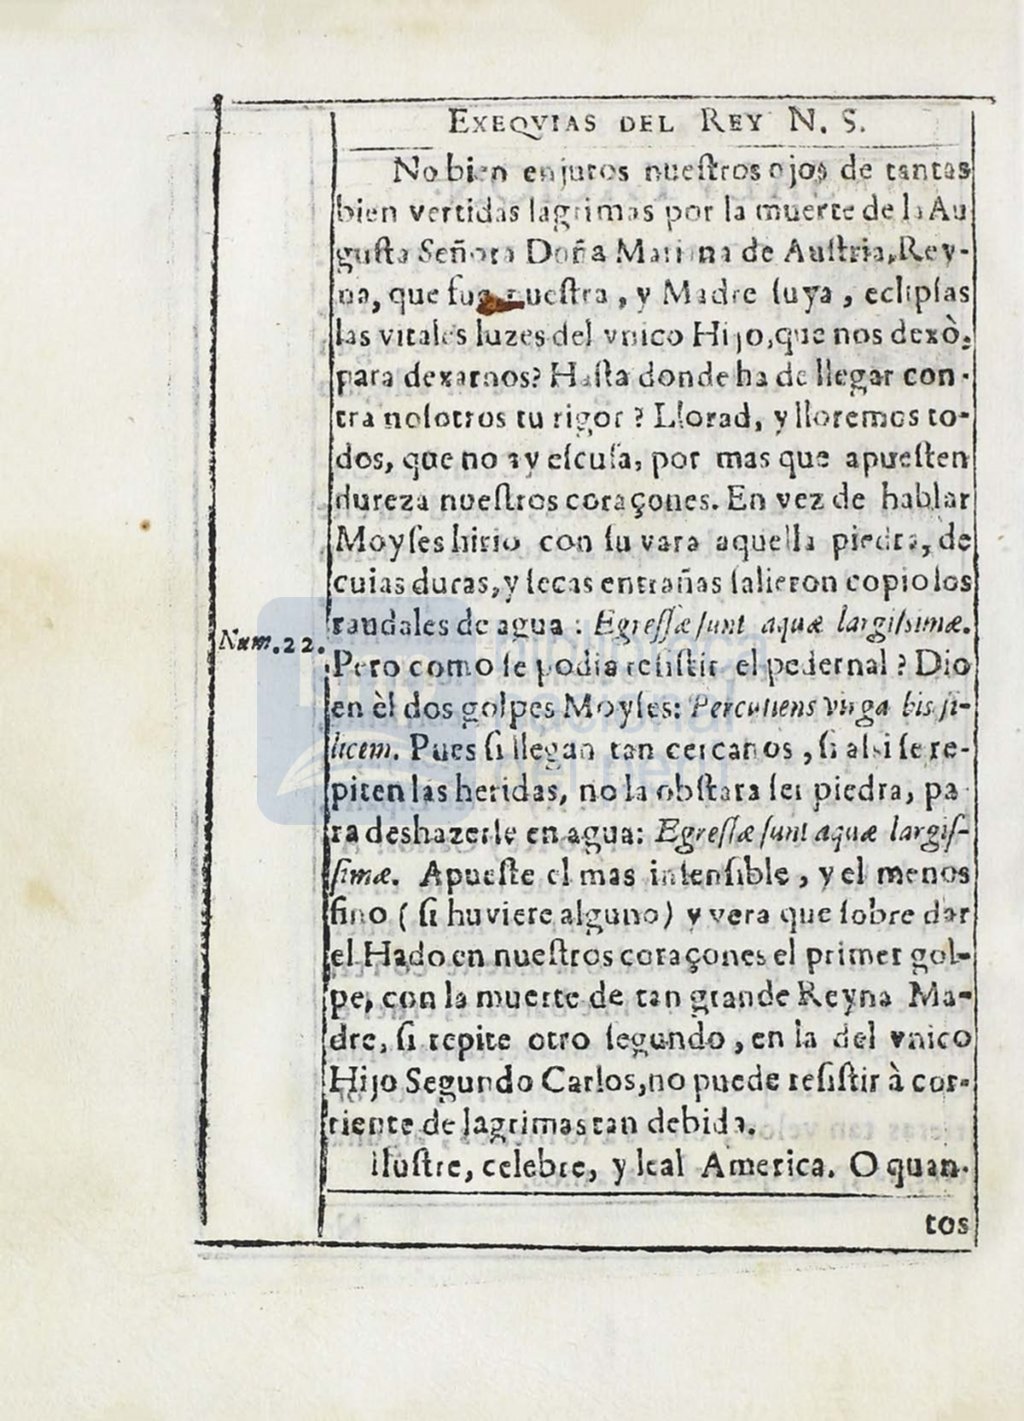 EXEQVIAS DEL REY N. S.
No bien enjutos nueſtros ojos de tantas
bien vertidas lagrimas por la muerte de la Au
guſta Señora Doña Mariana de Auſtria, Rey-
na, que fue nueſtra, y Madre ſuya, eclipſas
las vitales luzes del vnico Hijo, que nos dexò,
para dexarnos? Haſta donde ha de llegar con-
tra noſotros tu rigor? Llorad, y lloremos to-
dos, que no ay eſcuſa, por mas que apueſten
dureza nueſtros coraçones. En vez de hablar
Moyſes hirio con ſu vara aquella piedra, de
cuias duras, y ſecas entrañas ſalieron copioſos
raudales de agua: Egreſſæ ſunt aquæ largiſsimæ.
Num. 22.
Pero como ſe podia reſiſtir el pedernal? Dio
en èl dos golpes Moyſes: Percutiens virga bis ſi-
licem. Pues ſi llegan tan cercanos, ſi alsi ſe re-
piten las heridas, no la obſtara ſer piedra, pa
ra deshazerſe en agua: Egreſſæ ſunt aquæ largiſ-
ſimæ. Apueſte el mas inſenſible, y el menos
fino (ſi huviere alguno) y vera que ſobre dar
el Hado en nueſtros coraçones el primer gol-
pe, con la muerte de tan grande Reyna Ma-
dre, ſi repite otro ſegundo, en la del vnico
Hijo Segundo Carlos, no puede reſiſtir à cor-
riente de lagrimas tan debida.
iluſtre, celebre, y leal America. O quan-
tos